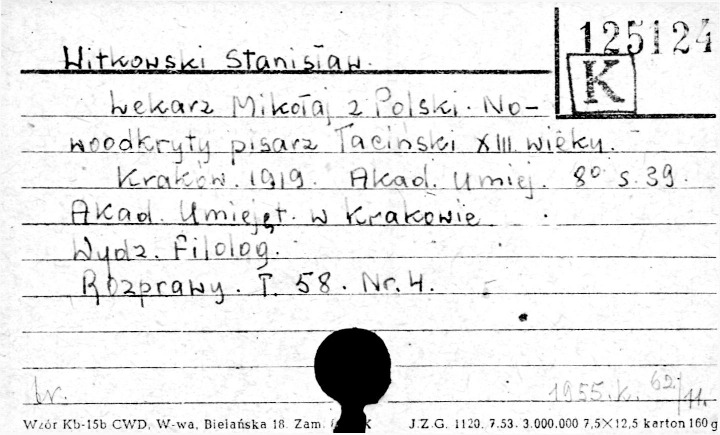 125124
K
Witkowski Stanisław.
Lekarz Mikołaj z Polski. No-
woodkryty pisarz łaciński XIII wieku.
Kraków. 1919. Akad. Umiej. 8° s. 39.
Akad. Umiejęt. w Krakowie
Wydz. Filolog.
Rozprawy. T. 58. Nr. 4.
br.
1955.k. 62/11.
Wzór Kb-15b CWD, W-wa, Bielańska 18. Zam. K J.Z.G. 1120. 7.53. 3.000.000 7,5×12,5 karton 160 g